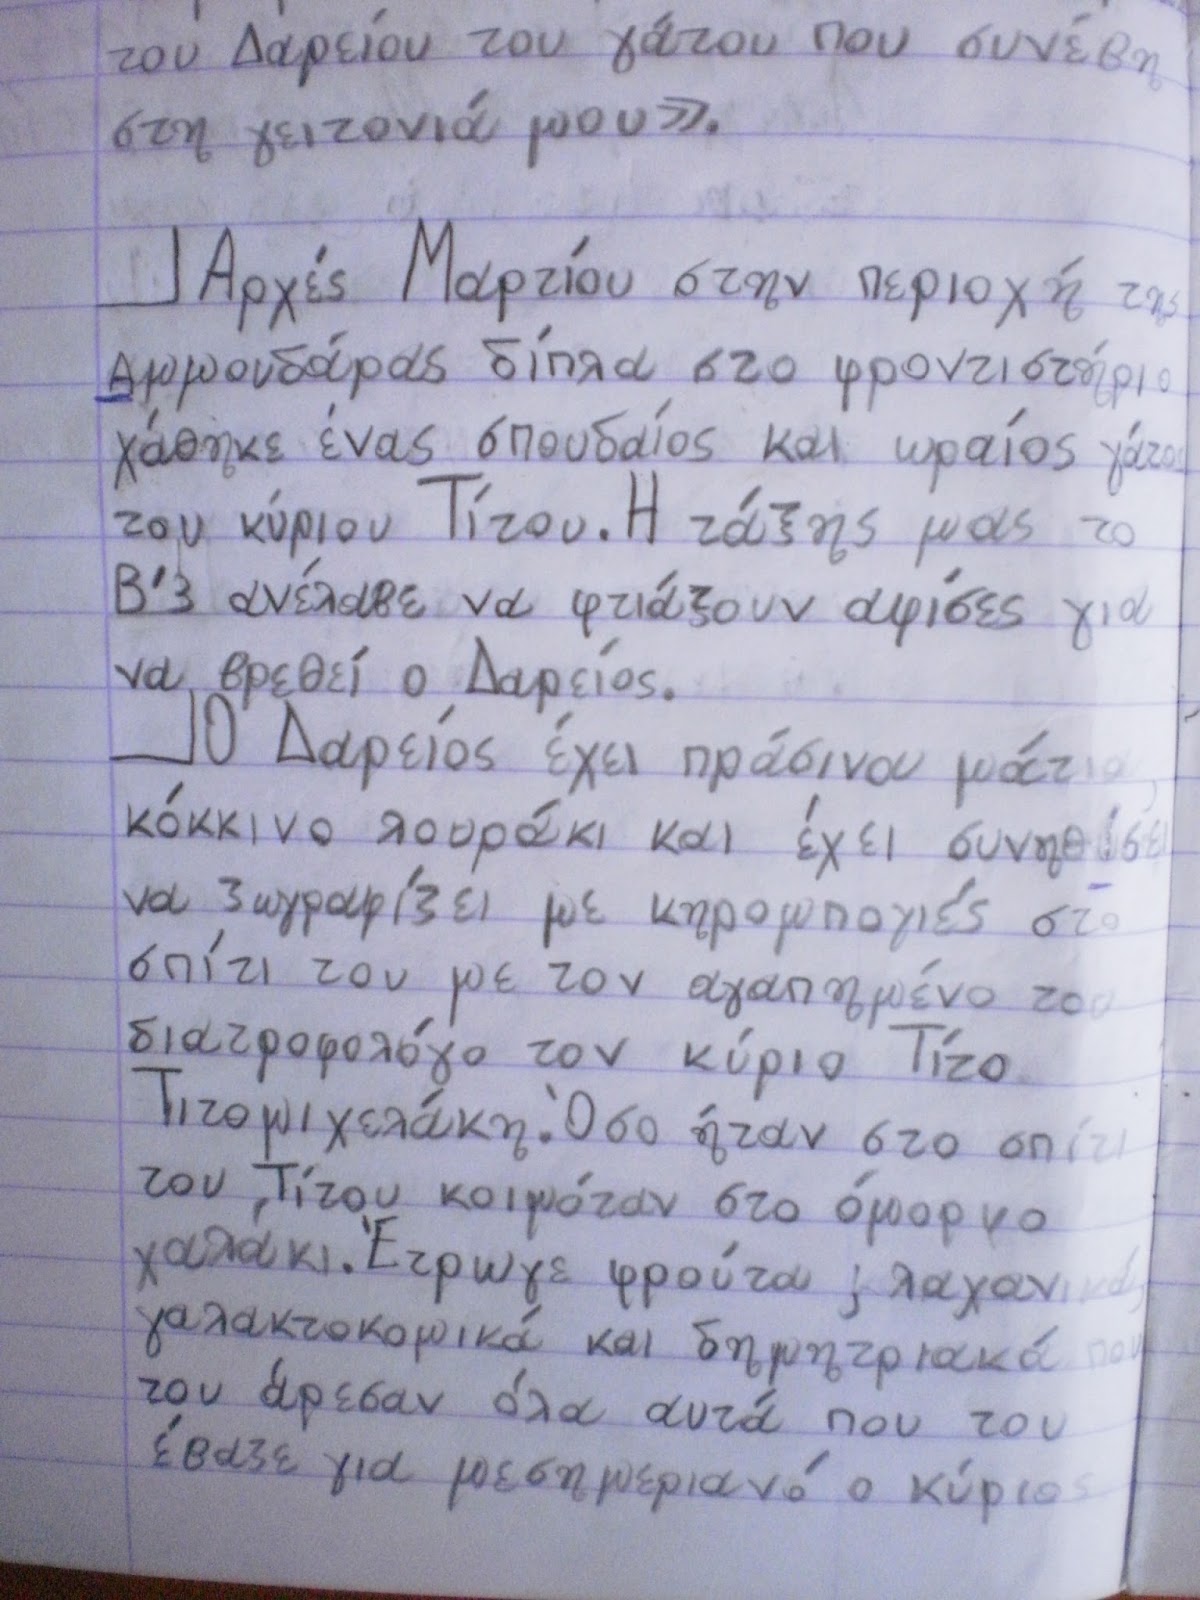 του Δαρείου του γάτου που συνέβη
στη γειτονιά μου».
Αρχές Μαρτίου στην περιοχή της
Αμμουδάρας δίπλα στο φροντιστήριο
χάθηκε ένας σπουδαίος και ωραίος γάτος
του κύριου Τίτου. Η τάξης μας το
Β'3 ανέλαβε να φτιάξουν αφίσες για
να βρεθεί ο Δαρείος.
Ο Δαρείος έχει πράσινου μάτια,
κόκκινο λουράκι και έχει συνηθίσει
να ζωγραφίζει με κηρομπογιές στο
σπίτι του με τον αγαπημένο του
διατροφολόγο τον κύριο Τίτο
Τιτομιχελάκη. Όσο ήταν στο σπίτι
του Τίτου κοιμόταν στο όμορφο
χαλάκι. Έτρωγε φρούτα, λαχανικά,
γαλακτοκομικά και δημητριακά που
του άρεσαν όλα αυτά που του
έβαζε για μεσημεριανό ο κύριος